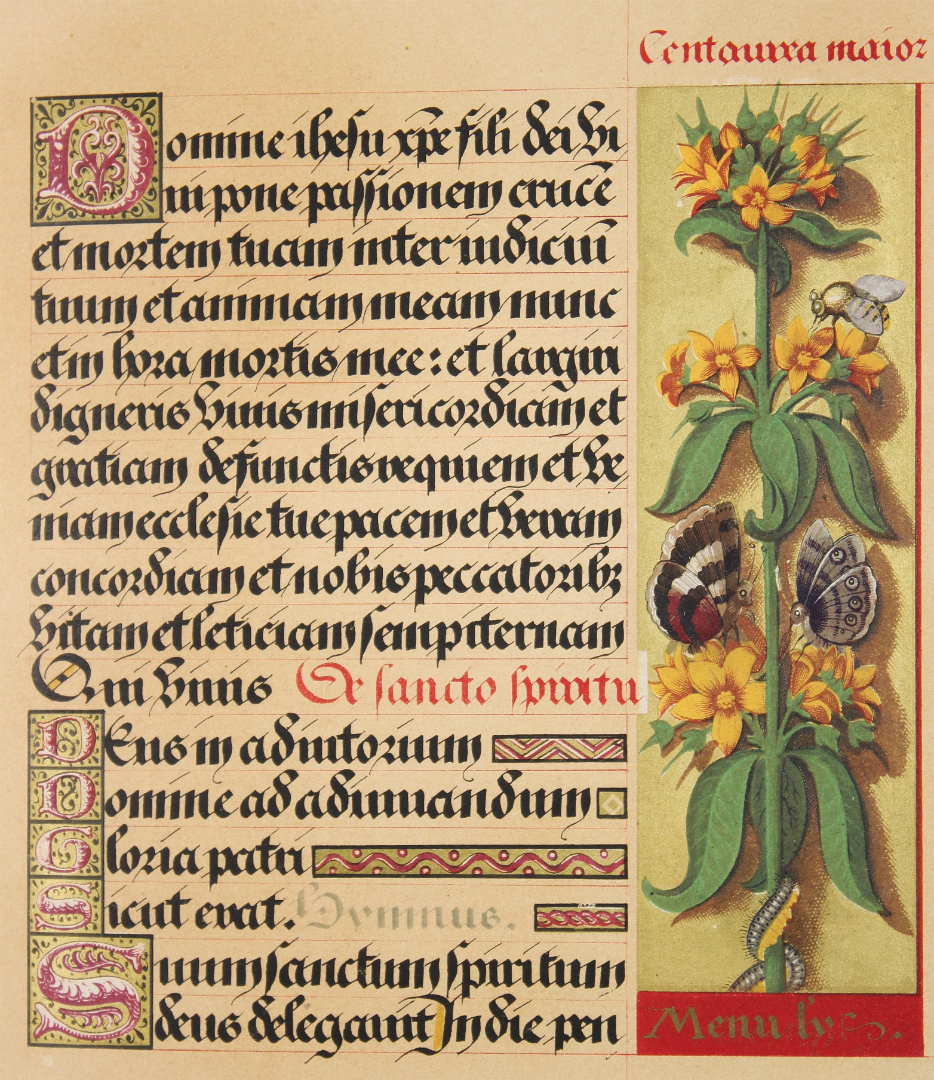 Centaurea maior
Domine ihesu xp̄e fili dei vi
ui pone passionem crucē
et mortem tuam inter iudiciū
tuum et animam meam nunc
et in hora mortis mee: et largiri
digneris viuis misericordiam et
gratiam defunctis requiem et ve
niam ecclesie tue pacem et veram
concordiam et nobis peccatoribꝫ
vitam et leticiam sempiternam
Qui viuis De sancto spiritu
Deus in adiutorium
Domine ad adiuuandum
Gloria patri
Sicut erat. Hymnus.
Suum sanctum spiritum
deus delegauit In die pen
Menu lyſ.